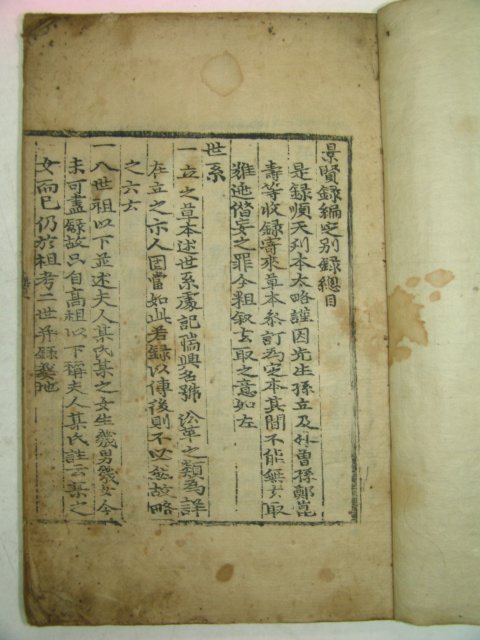 景賢錄編定別錄總目
是錄順天列本太略謹因先生孫立及外曾孫鄭崑
壽等收錄寄來草本叅訂爲定本其間不能無去取
雖迹僣妄之罪今粗叙去取之意如左
世系
一立之草本述世系處記瑞興名號沿革之類爲詳
在立之示人因當如此若錄以傳後則不必故略
之六去
一八世祖以下並述夫人某氏某之女生幾男幾女今
未可盡錄故只自高祖以下稱夫人某氏註云某之
女而已仍於祖考二世并錄葬地